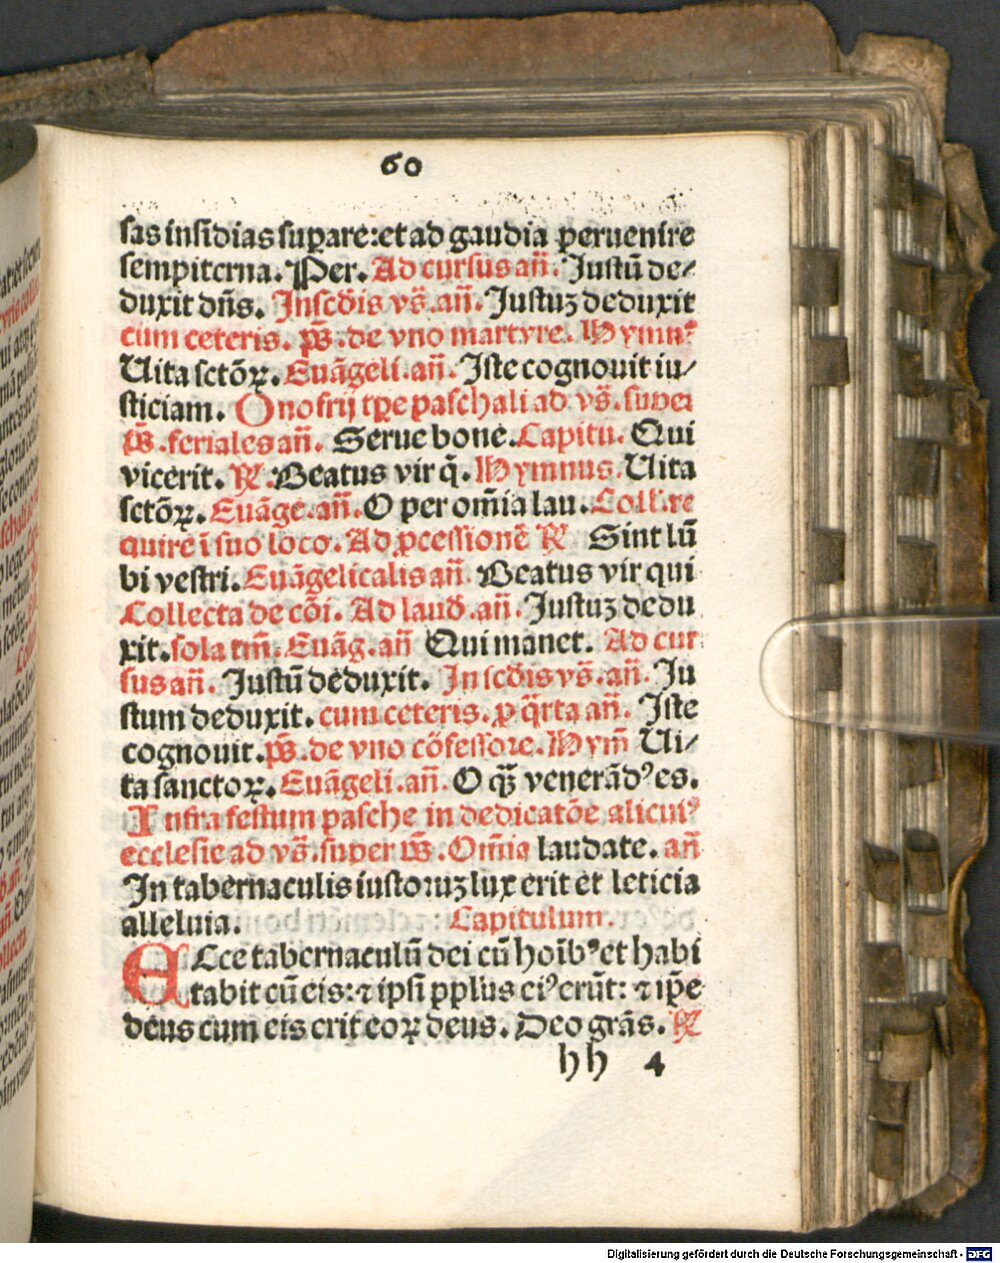 60
sas insidias suꝑare: et ad gaudia ꝑuenire
sempiterna. Per. Ad cursus an̄. Justū de⸗
duxit dn̄s. In scd̄is vs̄. an̄. Justuꝫ deduxit
cum ceteris. ps̄. de vno martyre. Hymnꝰ
Uita sctōꝝ. Euāgeli. an̄. Iste cognouit iu⸗
sticiam. Onofrij tꝑe paschali ad vs̄. super
ps̄. feriales an̄. Serue bone. Capitu. Qui
vicerit. ℟. Beatus vir q̄. Hymnus. Uita
sctōꝝ. Euāge. an̄. O per om̄ia lau. Coll. re
quire ī suo loco. Ad ꝓcessionē ℟ Sint lū
bi vestri. Euāgelicalis an̄. Beatus vir qui
Collecta de cōi. Ad laud. an̄. Justuꝫ dedu
xit. sola tm̄. Euāg. an̄ Qui manet. Ad cur
sus an̄. Justū deduxit. In scd̄is vs̄. an̄. Ju
stum deduxit. cum ceteris. ꝓ q̄rta an̄. Iste
cognouit. ps̄. de vno cōfessore. Hym̄ Ui⸗
ta sanctoꝝ. Euāgeli. an̄. O q̄ꝫ venerādꝰ es.
Infra festum pasche in dedicatōe alicuiꝰ
ecclesie ad vs̄. super ps̄. Om̄ia laudate. an̄
In tabernaculis iustoruꝫ lux erit et leticia
alleluia. Capitulum.
ECce tabernaculū dei cū hoīb̄ꝰ et habi
tabit cū eis: ⁊ ipsi pp̄lus eiꝰ erūt: ⁊ ip̄e
deus cum eis erit eoꝝ deus. Deo gr̄as. ℟
hh 4
Digitalisierung gefördert durch die Deutsche Forschungsgemeinschaft - DFG